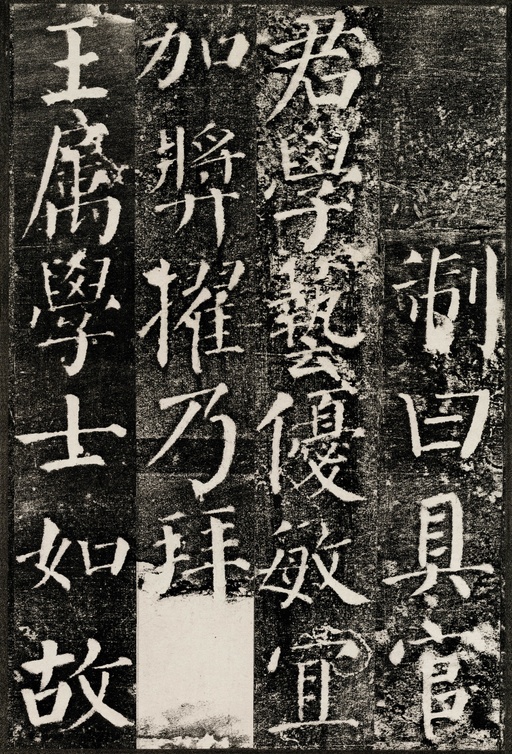 制曰具官
君學藝優敏宜
加獎擢乃拜
王屬學士如故